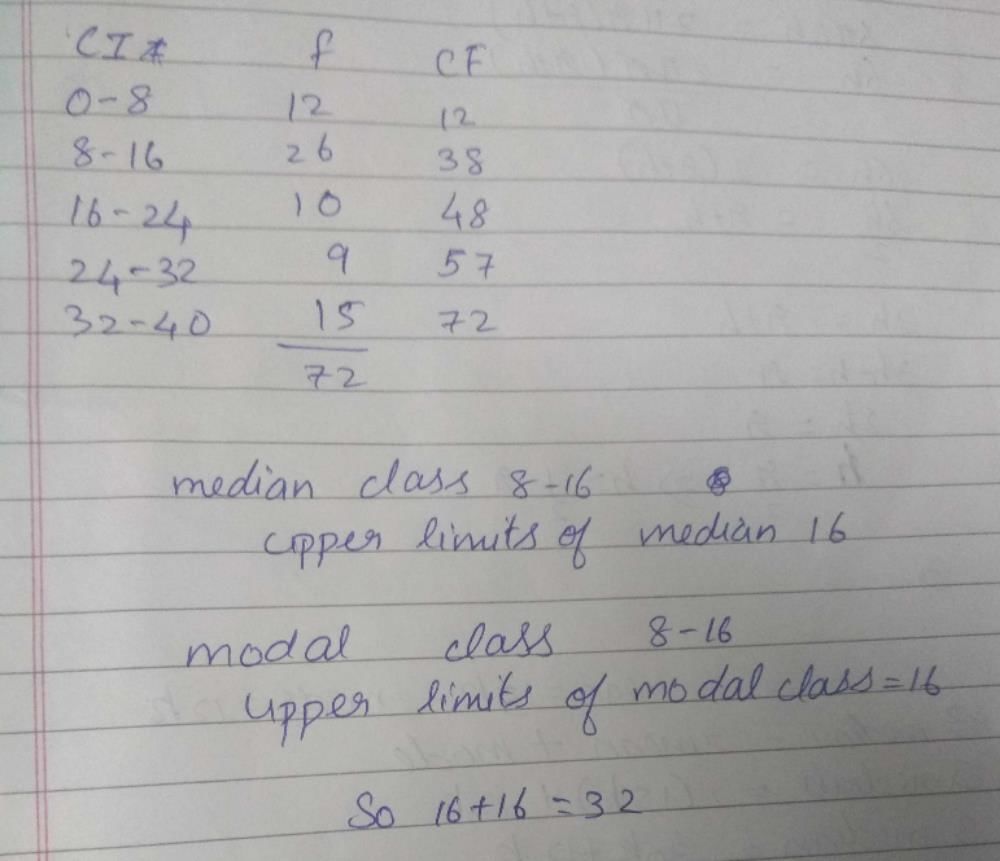 CI f CF
0-8 12 12
8-16 26 38
16-24 10 48
24-32 9 57
32-40 15 72
72
median class 8-16
upper limits of median 16
modal class 8-16
upper limits of modal class=16
So 16+16=32